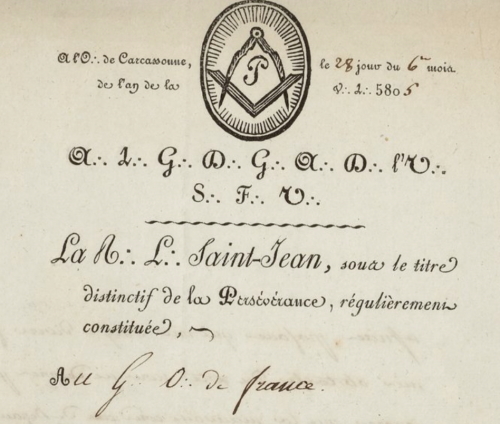 A l'O∴ de Carcassonne, le 28 jour du 6e mois
de l'an de la V∴ L∴ 5805
P
A∴ L∴ G∴ D∴ G∴ A∴ D∴ l'U∴
S∴ F∴ U∴
La R∴ L∴ Saint-Jean, sous le titre
distinctif de la Persévérance, régulièrement
constituée,
Au G∴ O∴ de france.